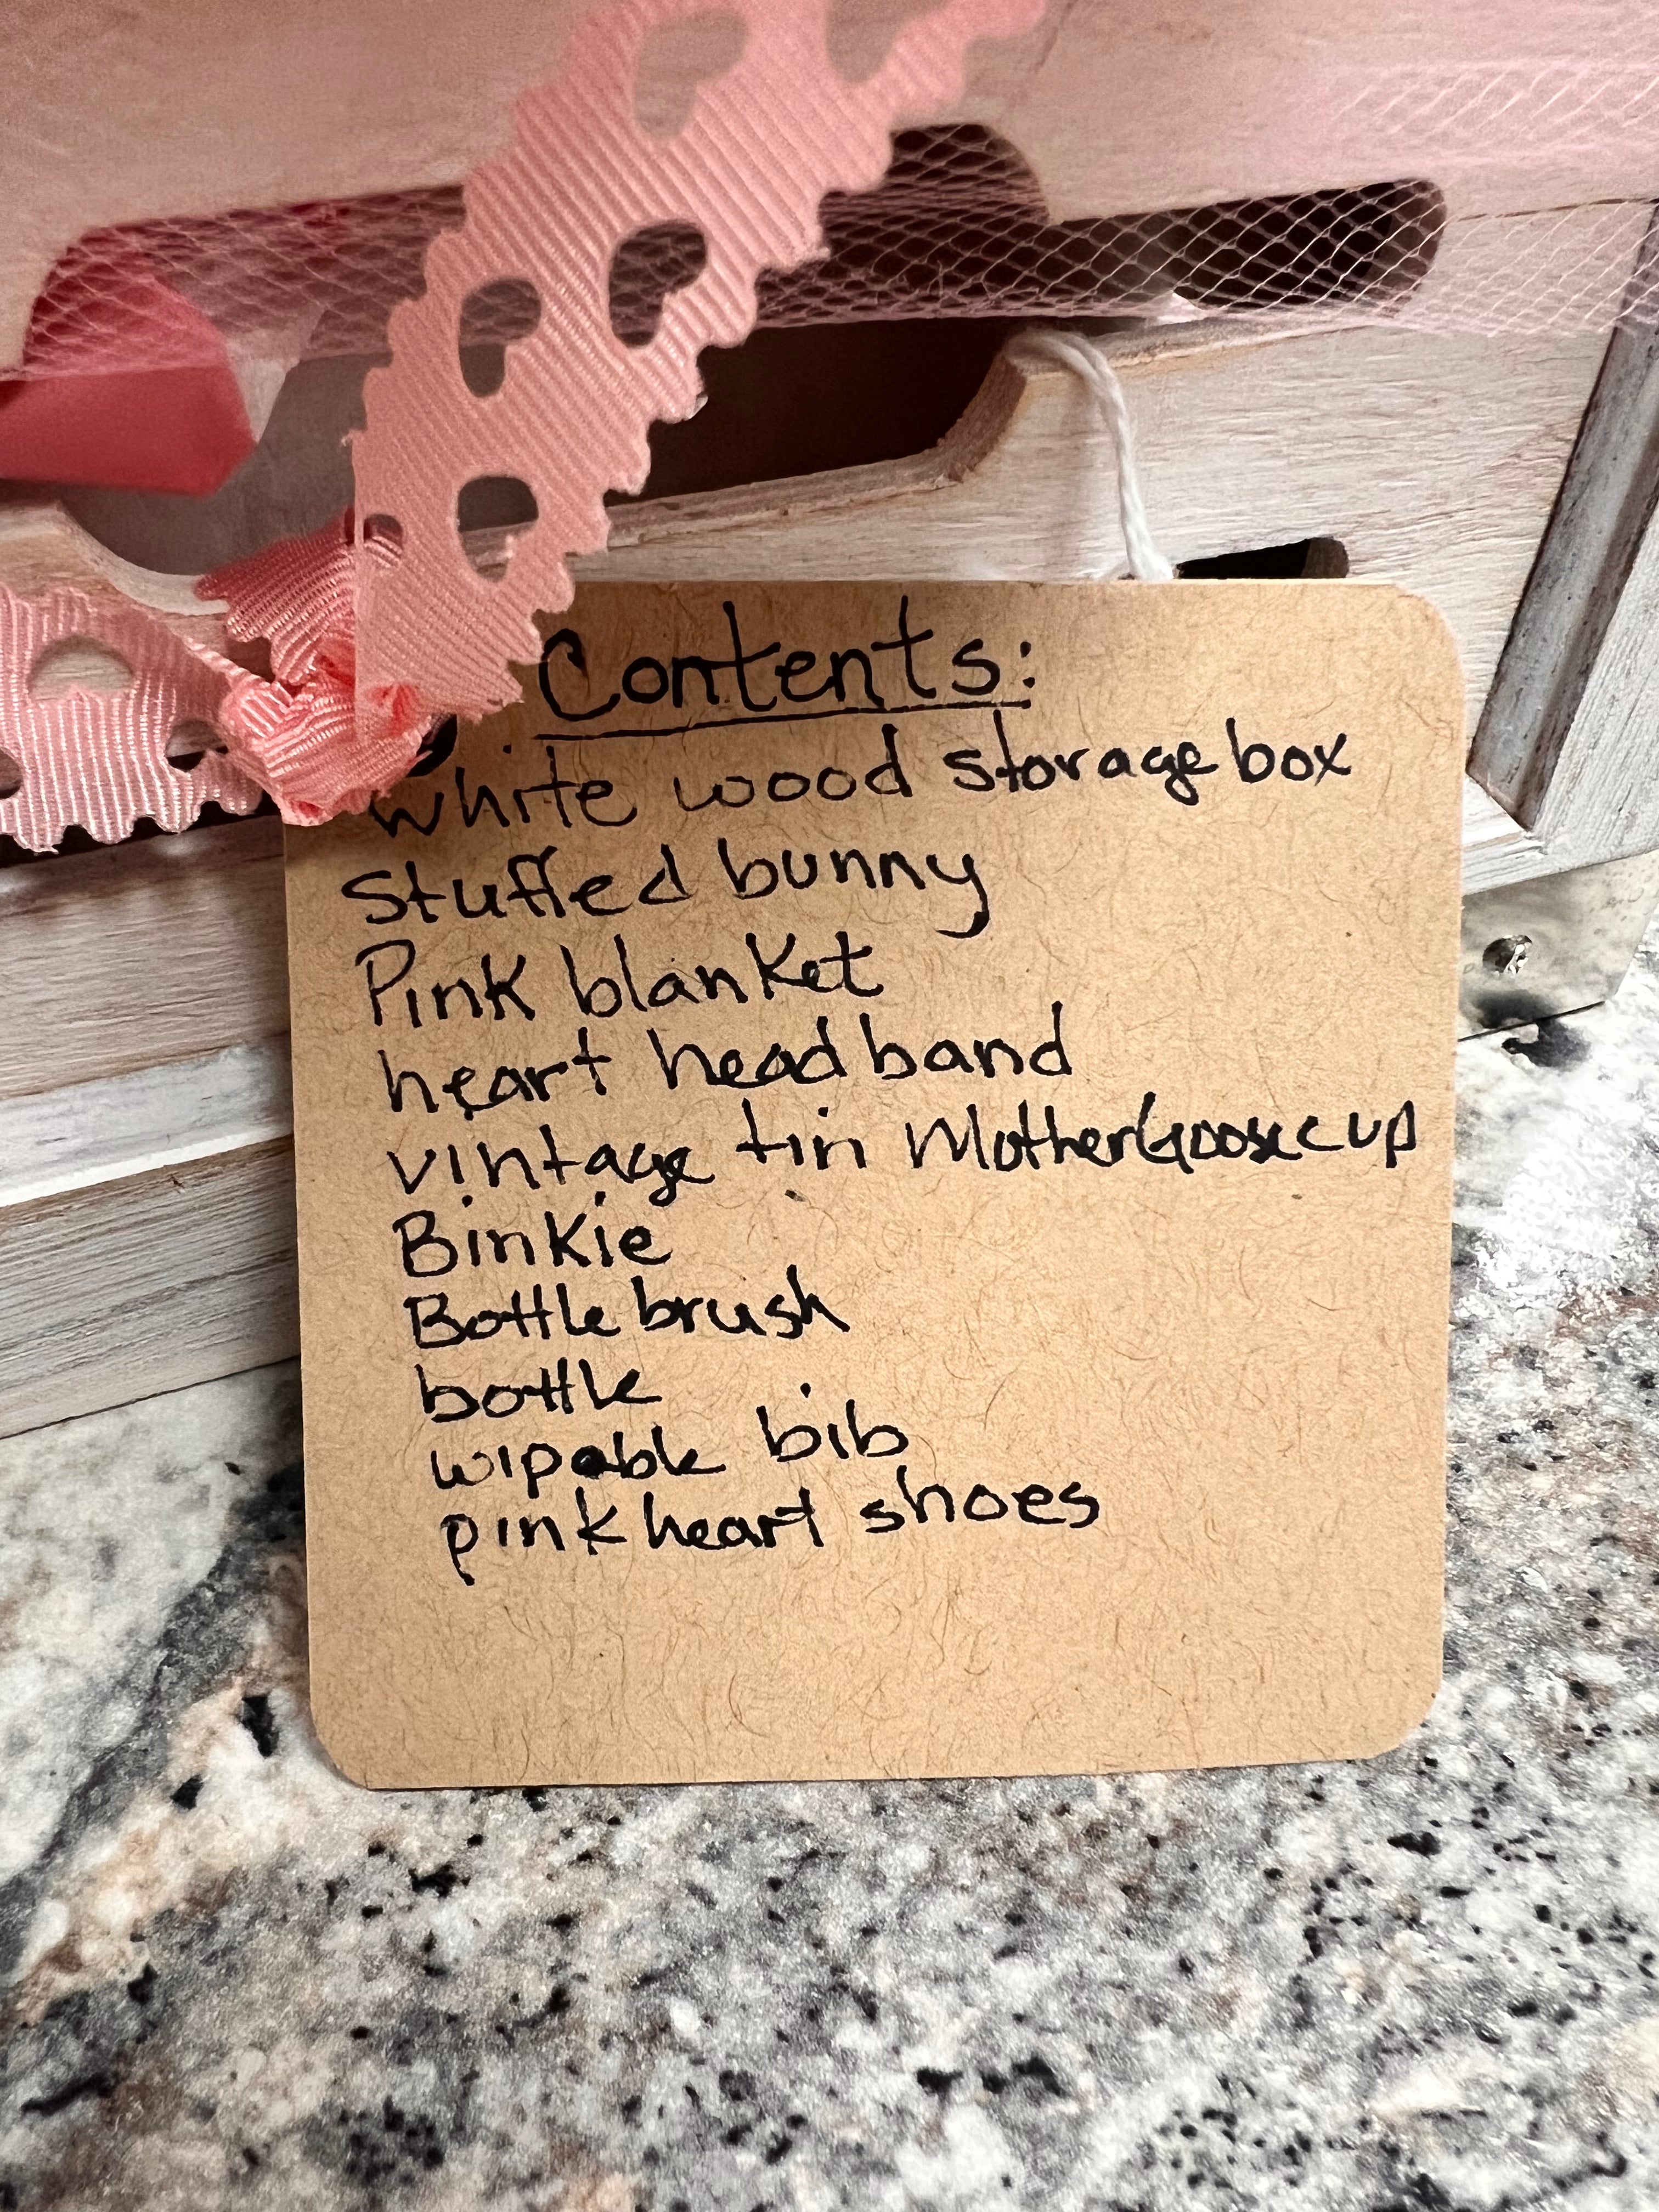 Contents:
White wood storage box
Stuffed bunny
Pink blanket
heart headband
vintage tin Mother Goose cup
Binkie
Bottle brush
bottle
wipable bib
pink heart shoes